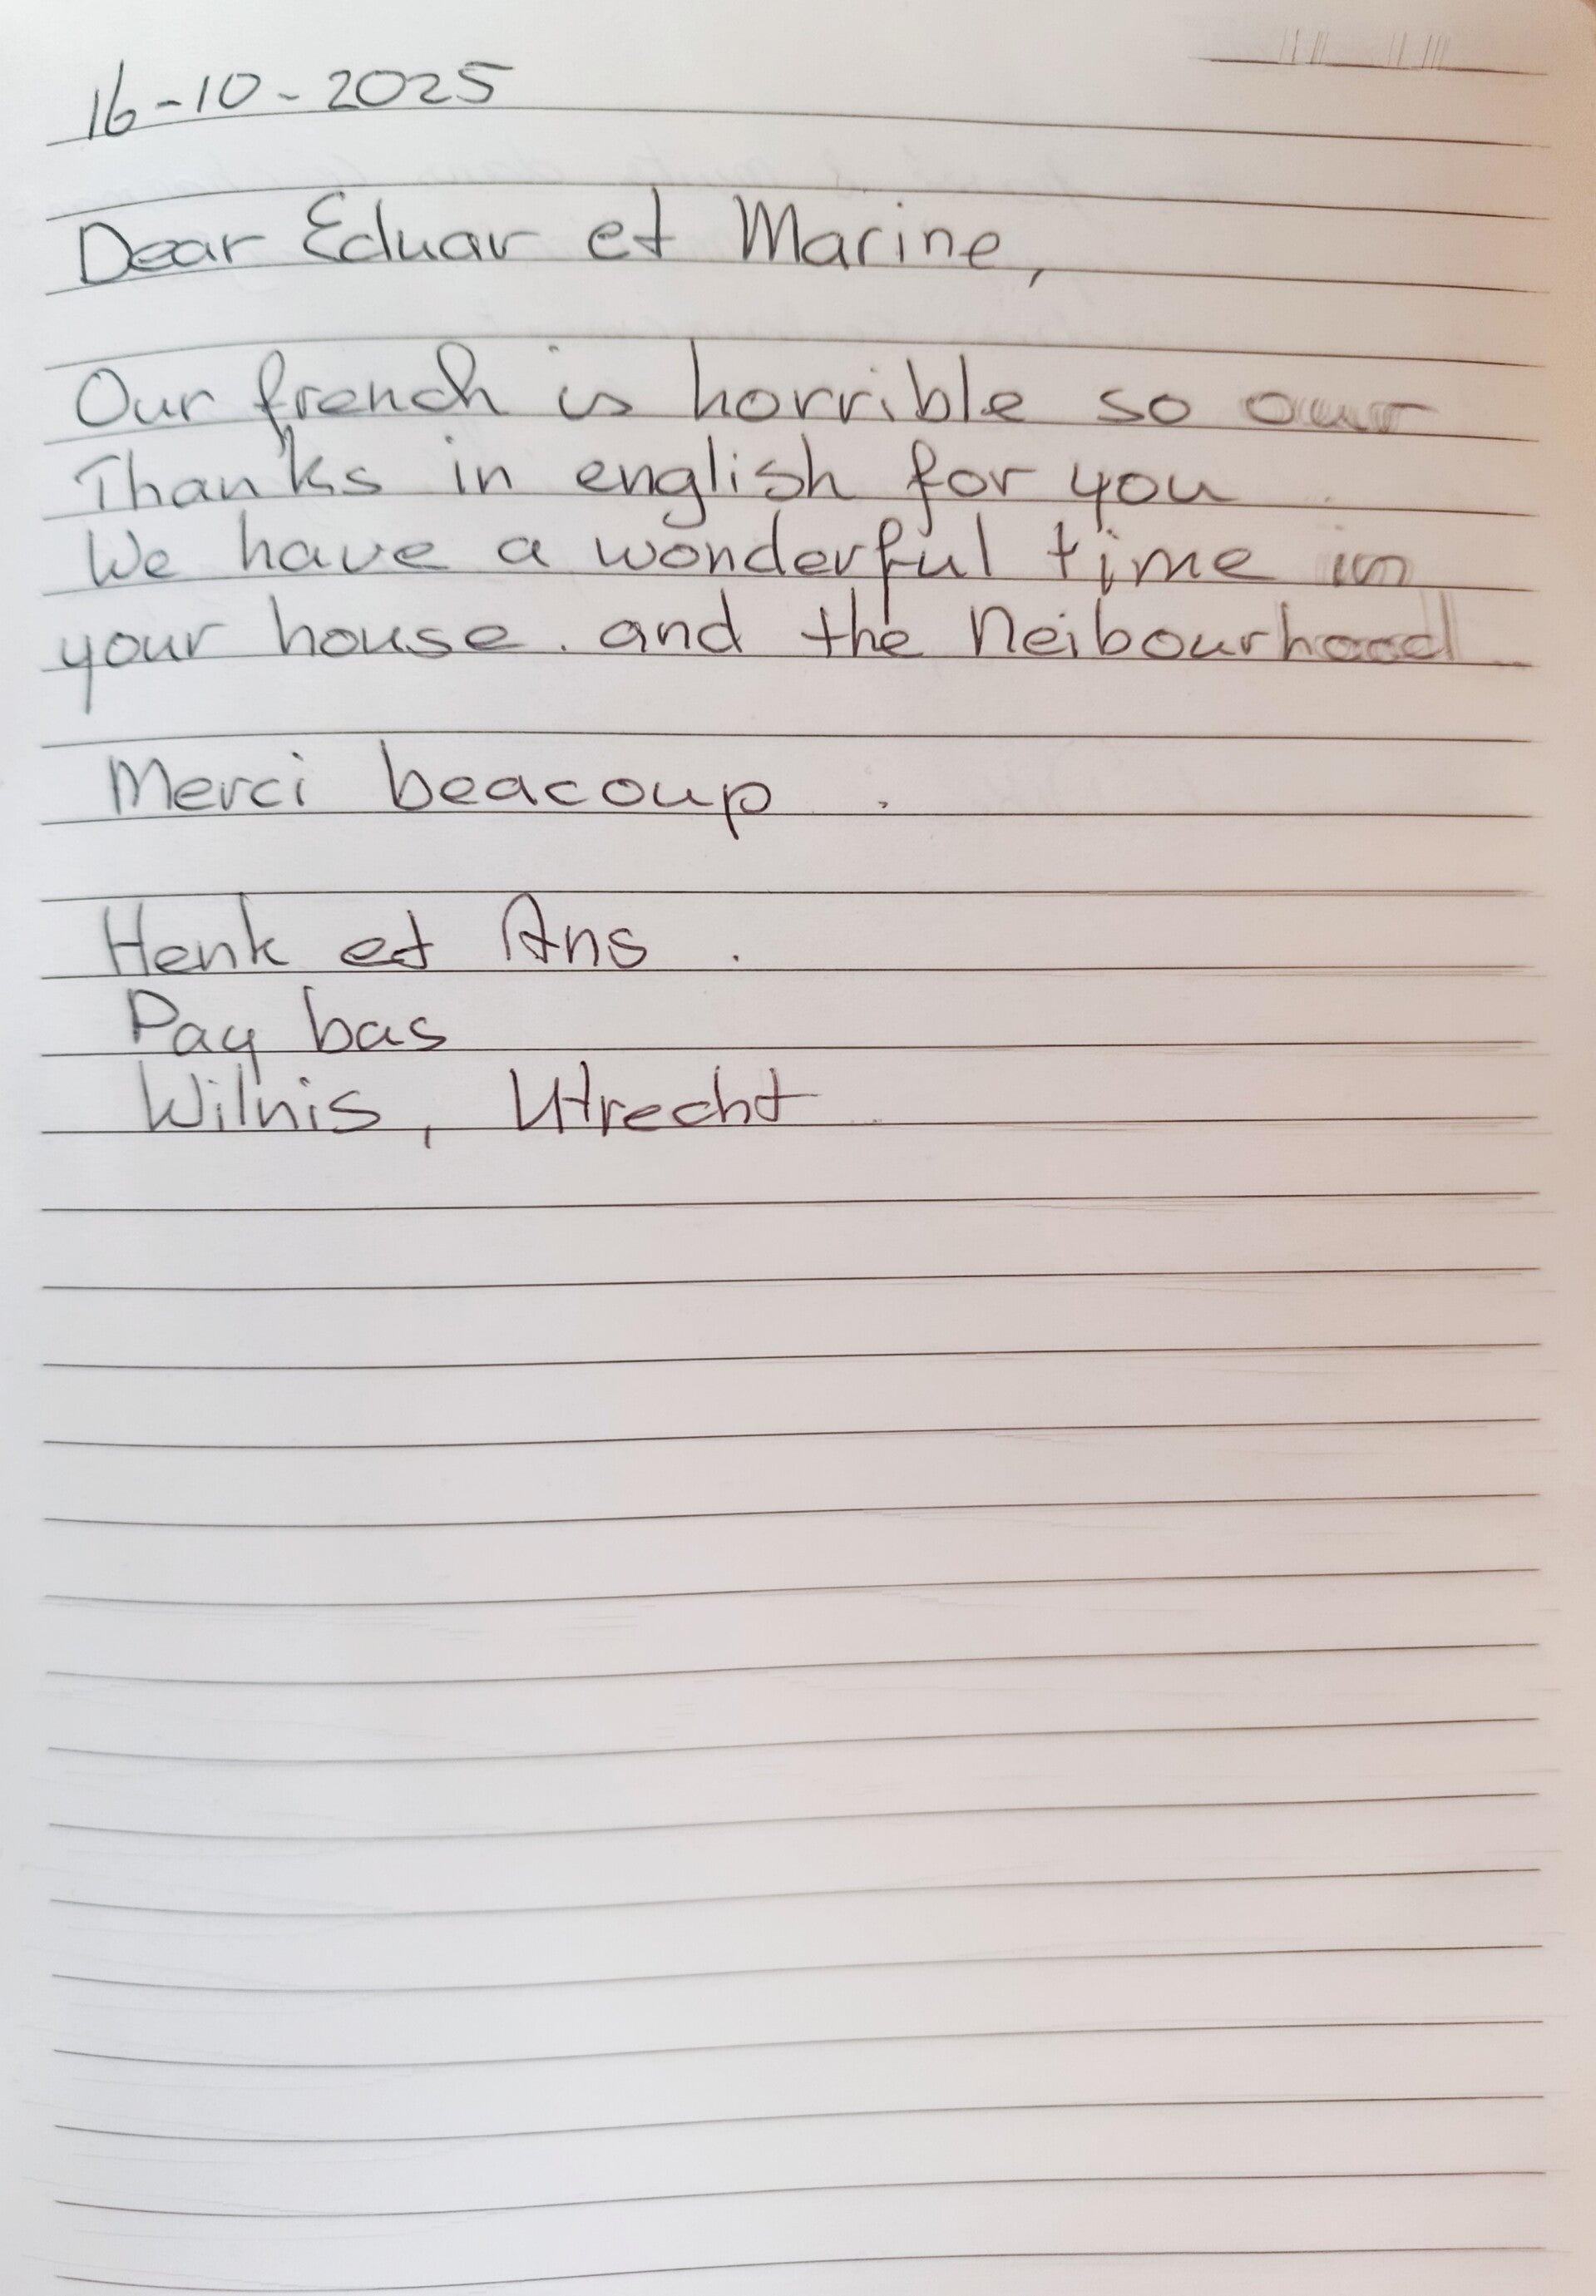 16-10-2025
Dear Eduar et Marine,
Our french is horrible so our
Thanks in english for you
We have a wonderful time in
your house. and the Neibourhood
Merci beacoup.
Henk et Ans.
Pay bas
Wilnis, Utrecht